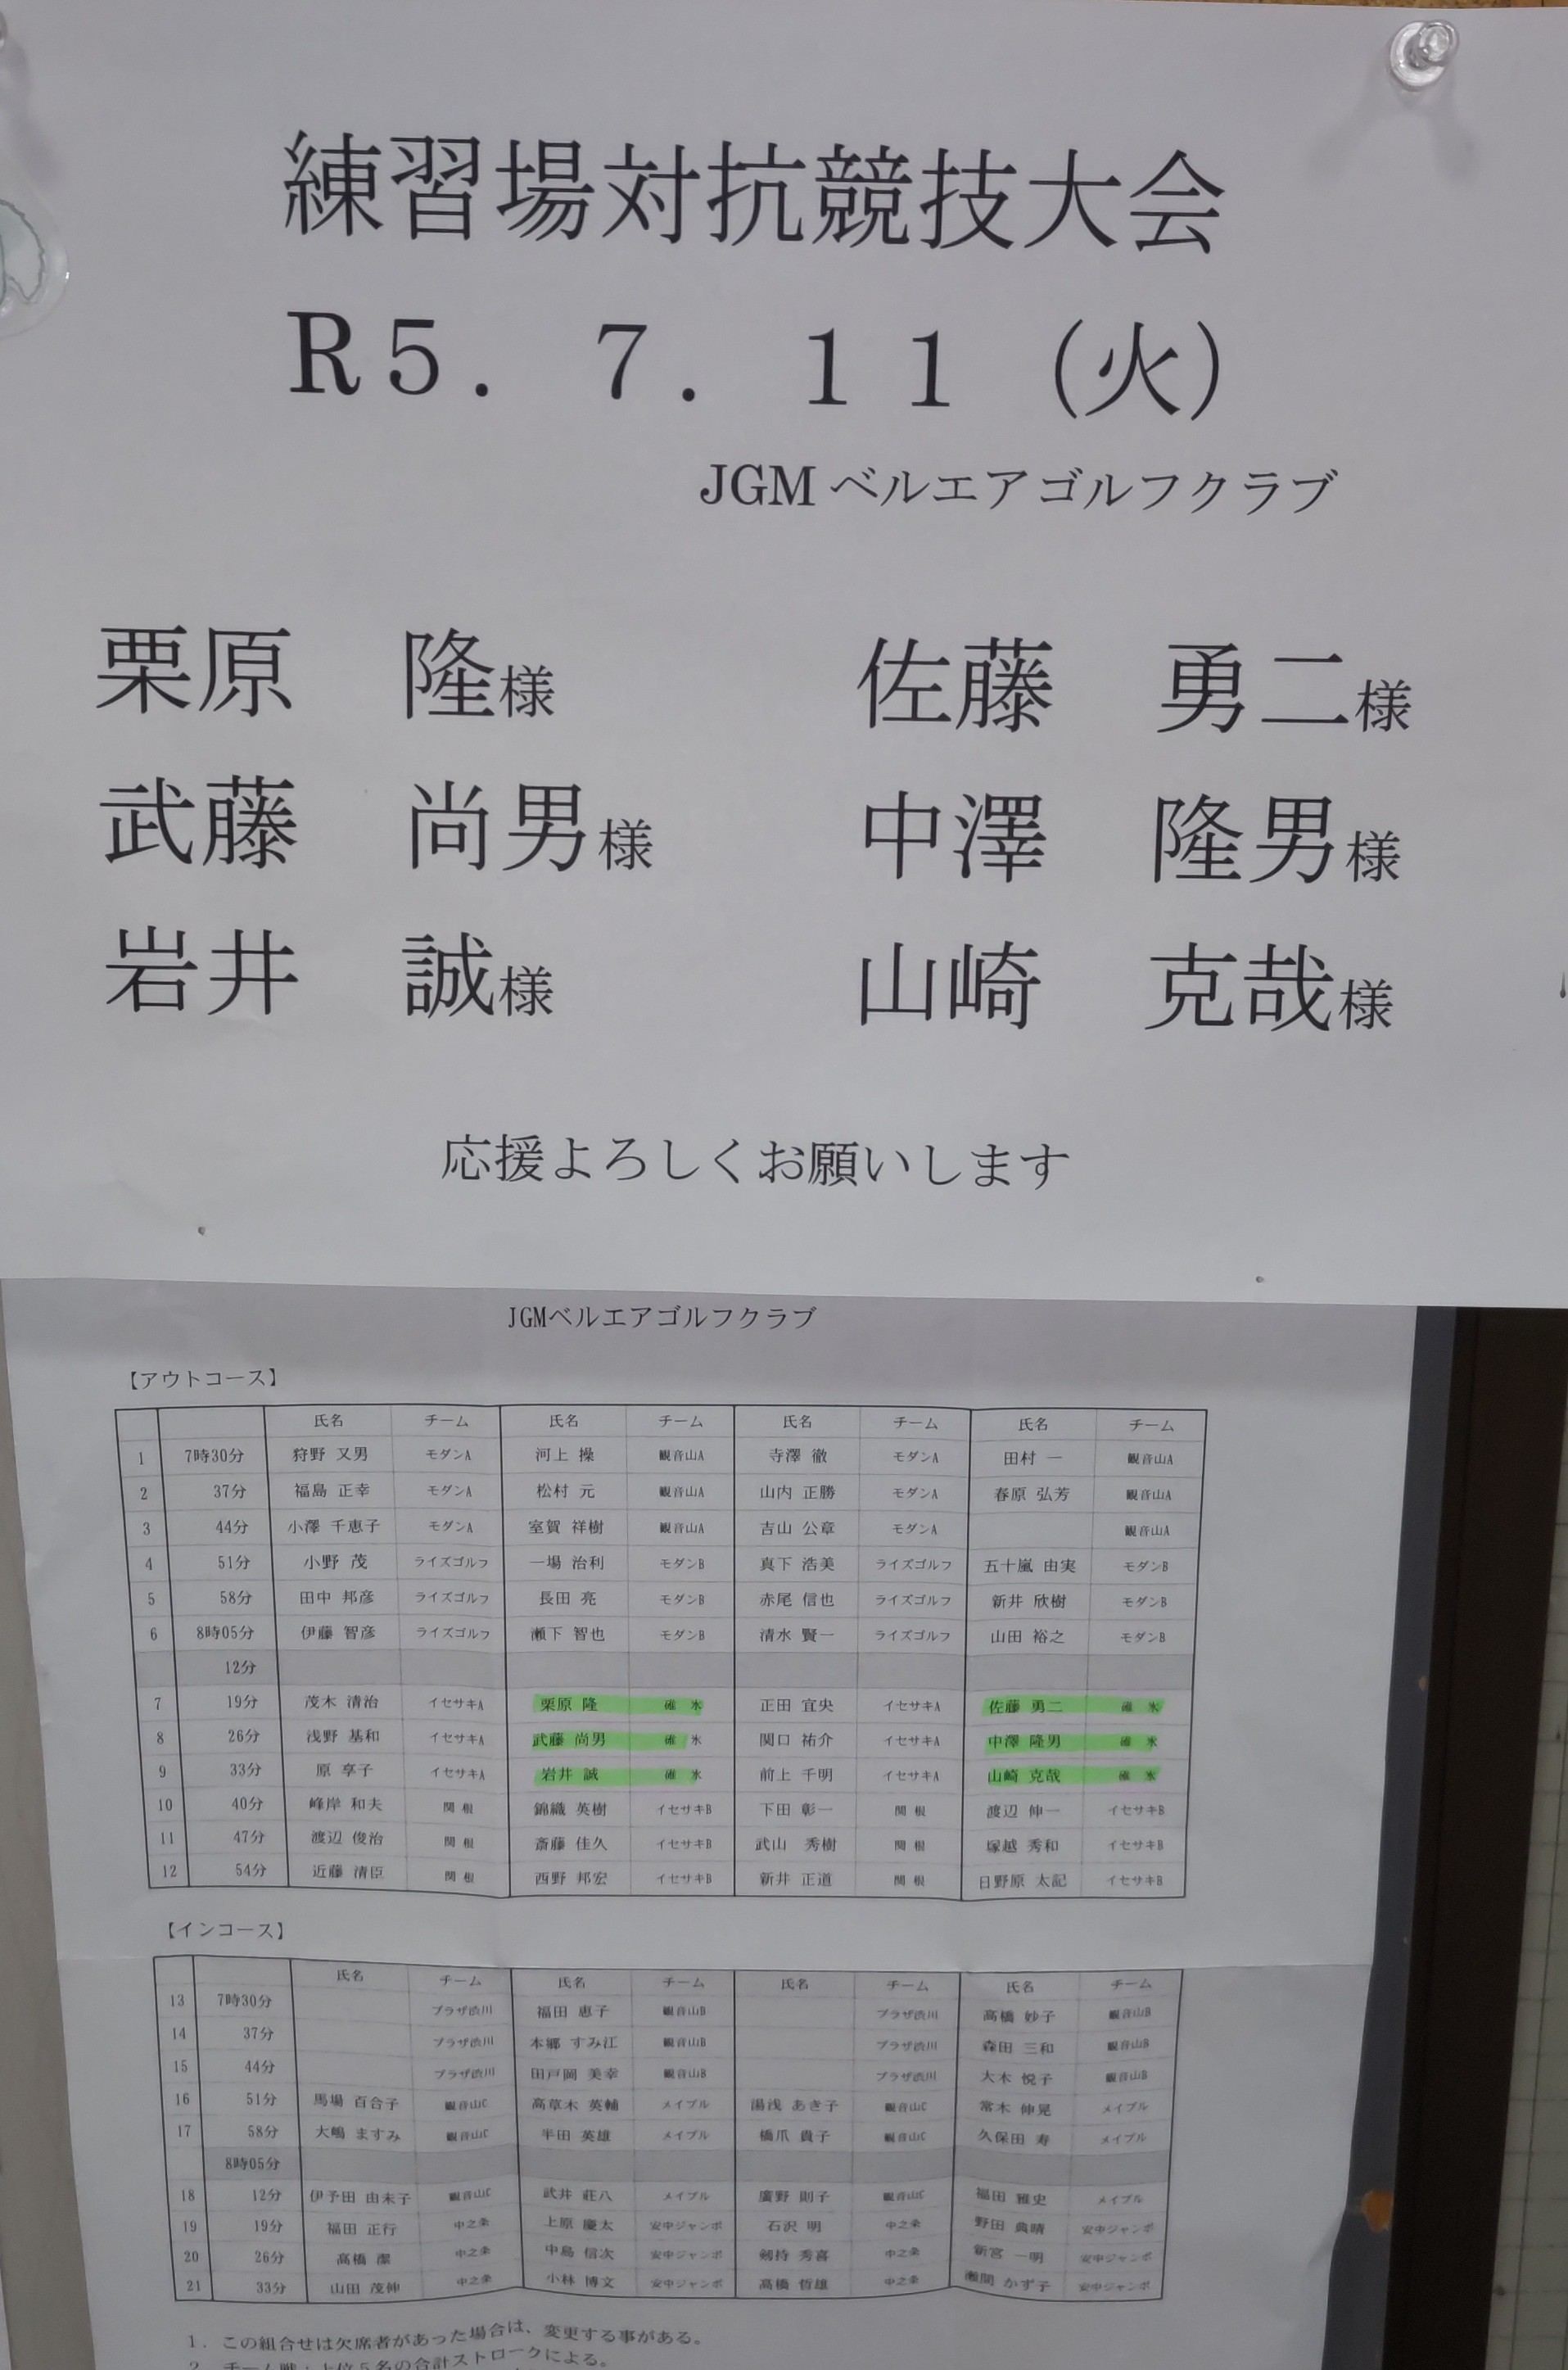 練習場対抗競技大会
R5. 7. 11 (火)
JGMベルエアゴルフクラブ
栗原 隆様 佐藤 勇二様
武藤 尚男様 中澤 隆男様
岩井 誠様 山崎 克哉様
応援よろしくお願いします
JGMベルエアゴルフクラブ
【アウトコース】
氏名 チーム 氏名 チーム 氏名 チーム 氏名 チーム
1 7時30分 狩野 又男 モダンA 河上 操 観音山A 寺澤 徹 モダンA 田村 一 観音山A
2 37分 福島 正幸 モダンA 松村 元 観音山A 山内 正勝 モダンA 春原 弘芳 観音山A
3 44分 小澤 千恵子 モダンA 室賀 祥樹 観音山A 吉山 公章 モダンA 観音山A
4 51分 小野 茂 ライズゴルフ 一場 治利 モダンB 真下 浩美 ライズゴルフ 五十嵐 由実 モダンB
5 58分 田中 邦彦 ライズゴルフ 長田 亮 モダンB 赤尾 信也 ライズゴルフ 新井 欣樹 モダンB
6 8時05分 伊藤 智彦 ライズゴルフ 瀬下 智也 モダンB 清水 賢一 ライズゴルフ 山田 裕之 モダンB
12分
7 19分 茂木 清治 イセサキA 栗原 隆 碓 氷 正田 宜央 イセサキA 佐藤 勇二 碓 氷
8 26分 浅野 基和 イセサキA 武藤 尚男 碓 氷 関口 祐介 イセサキA 中澤 隆男 碓 氷
9 33分 原 享子 イセサキA 岩井 誠 碓 氷 前上 千明 イセサキA 山崎 克哉 碓 氷
10 40分 峰岸 和夫 関 根 錦織 英樹 イセサキB 下田 彰一 関 根 渡辺 伸一 イセサキB
11 47分 渡辺 俊治 関 根 斎藤 佳久 イセサキB 武山 秀樹 関 根 塚越 秀和 イセサキB
12 54分 近藤 清臣 関 根 西野 邦宏 イセサキB 新井 正道 関 根 日野原 太記 イセサキB
【インコース】
氏名 チーム 氏名 チーム 氏名 チーム 氏名 チーム
13 7時30分 プラザ渋川 福田 恵子 観音山B プラザ渋川 高橋 妙子 観音山B
14 37分 プラザ渋川 本郷 すみ江 観音山B プラザ渋川 森田 三和 観音山B
15 44分 プラザ渋川 田戸岡 美幸 観音山B プラザ渋川 大木 悦子 観音山B
16 51分 馬場 百合子 観音山C 高草木 英輔 メイプル 湯浅 あき子 観音山C 常木 伸晃 メイプル
17 58分 大嶋 ますみ 観音山C 半田 英雄 メイプル 橋爪 貴子 観音山C 久保田 寿 メイプル
8時05分
18 12分 伊予田 由未子 観音山C 武井 荘八 メイプル 廣野 則子 観音山C 福田 雅史 メイプル
19 19分 福田 正行 中之条 上原 慶太 安中ジャンボ 石沢 明 中之条 野田 典晴 安中ジャンボ
20 26分 高橋 潔 中之条 中島 信次 安中ジャンボ 剱持 秀喜 中之条 新宮 一明 安中ジャンボ
21 33分 山田 茂伸 中之条 小林 博文 安中ジャンボ 高橋 哲雄 中之条 瀬間 かず子 安中ジャンボ
1. この組合せは欠席者があった場合は、変更する事がある。
2. チーム戦:上位5名の合計ストロークによる。